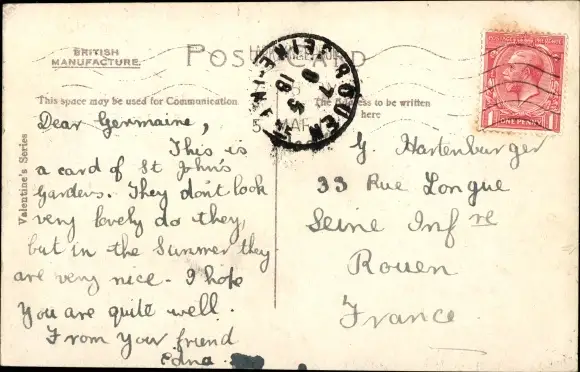 BRITISH
MANUFACTURE.
POST CARD
This space may be used for Communication
The Address to be written
here
Valentine's Series
Dear Germaine,
This is
a card of St John's
Gardens. They don't look
very lovely do they,
but in the Summer they
are very nice. I hope
you are quite well.
From your friend
Edna.
G Hartenburger
33 Rue Longue
Seine Infre
Rouen
France
ROUEN
7 5
18
ONE PENNY
1
1